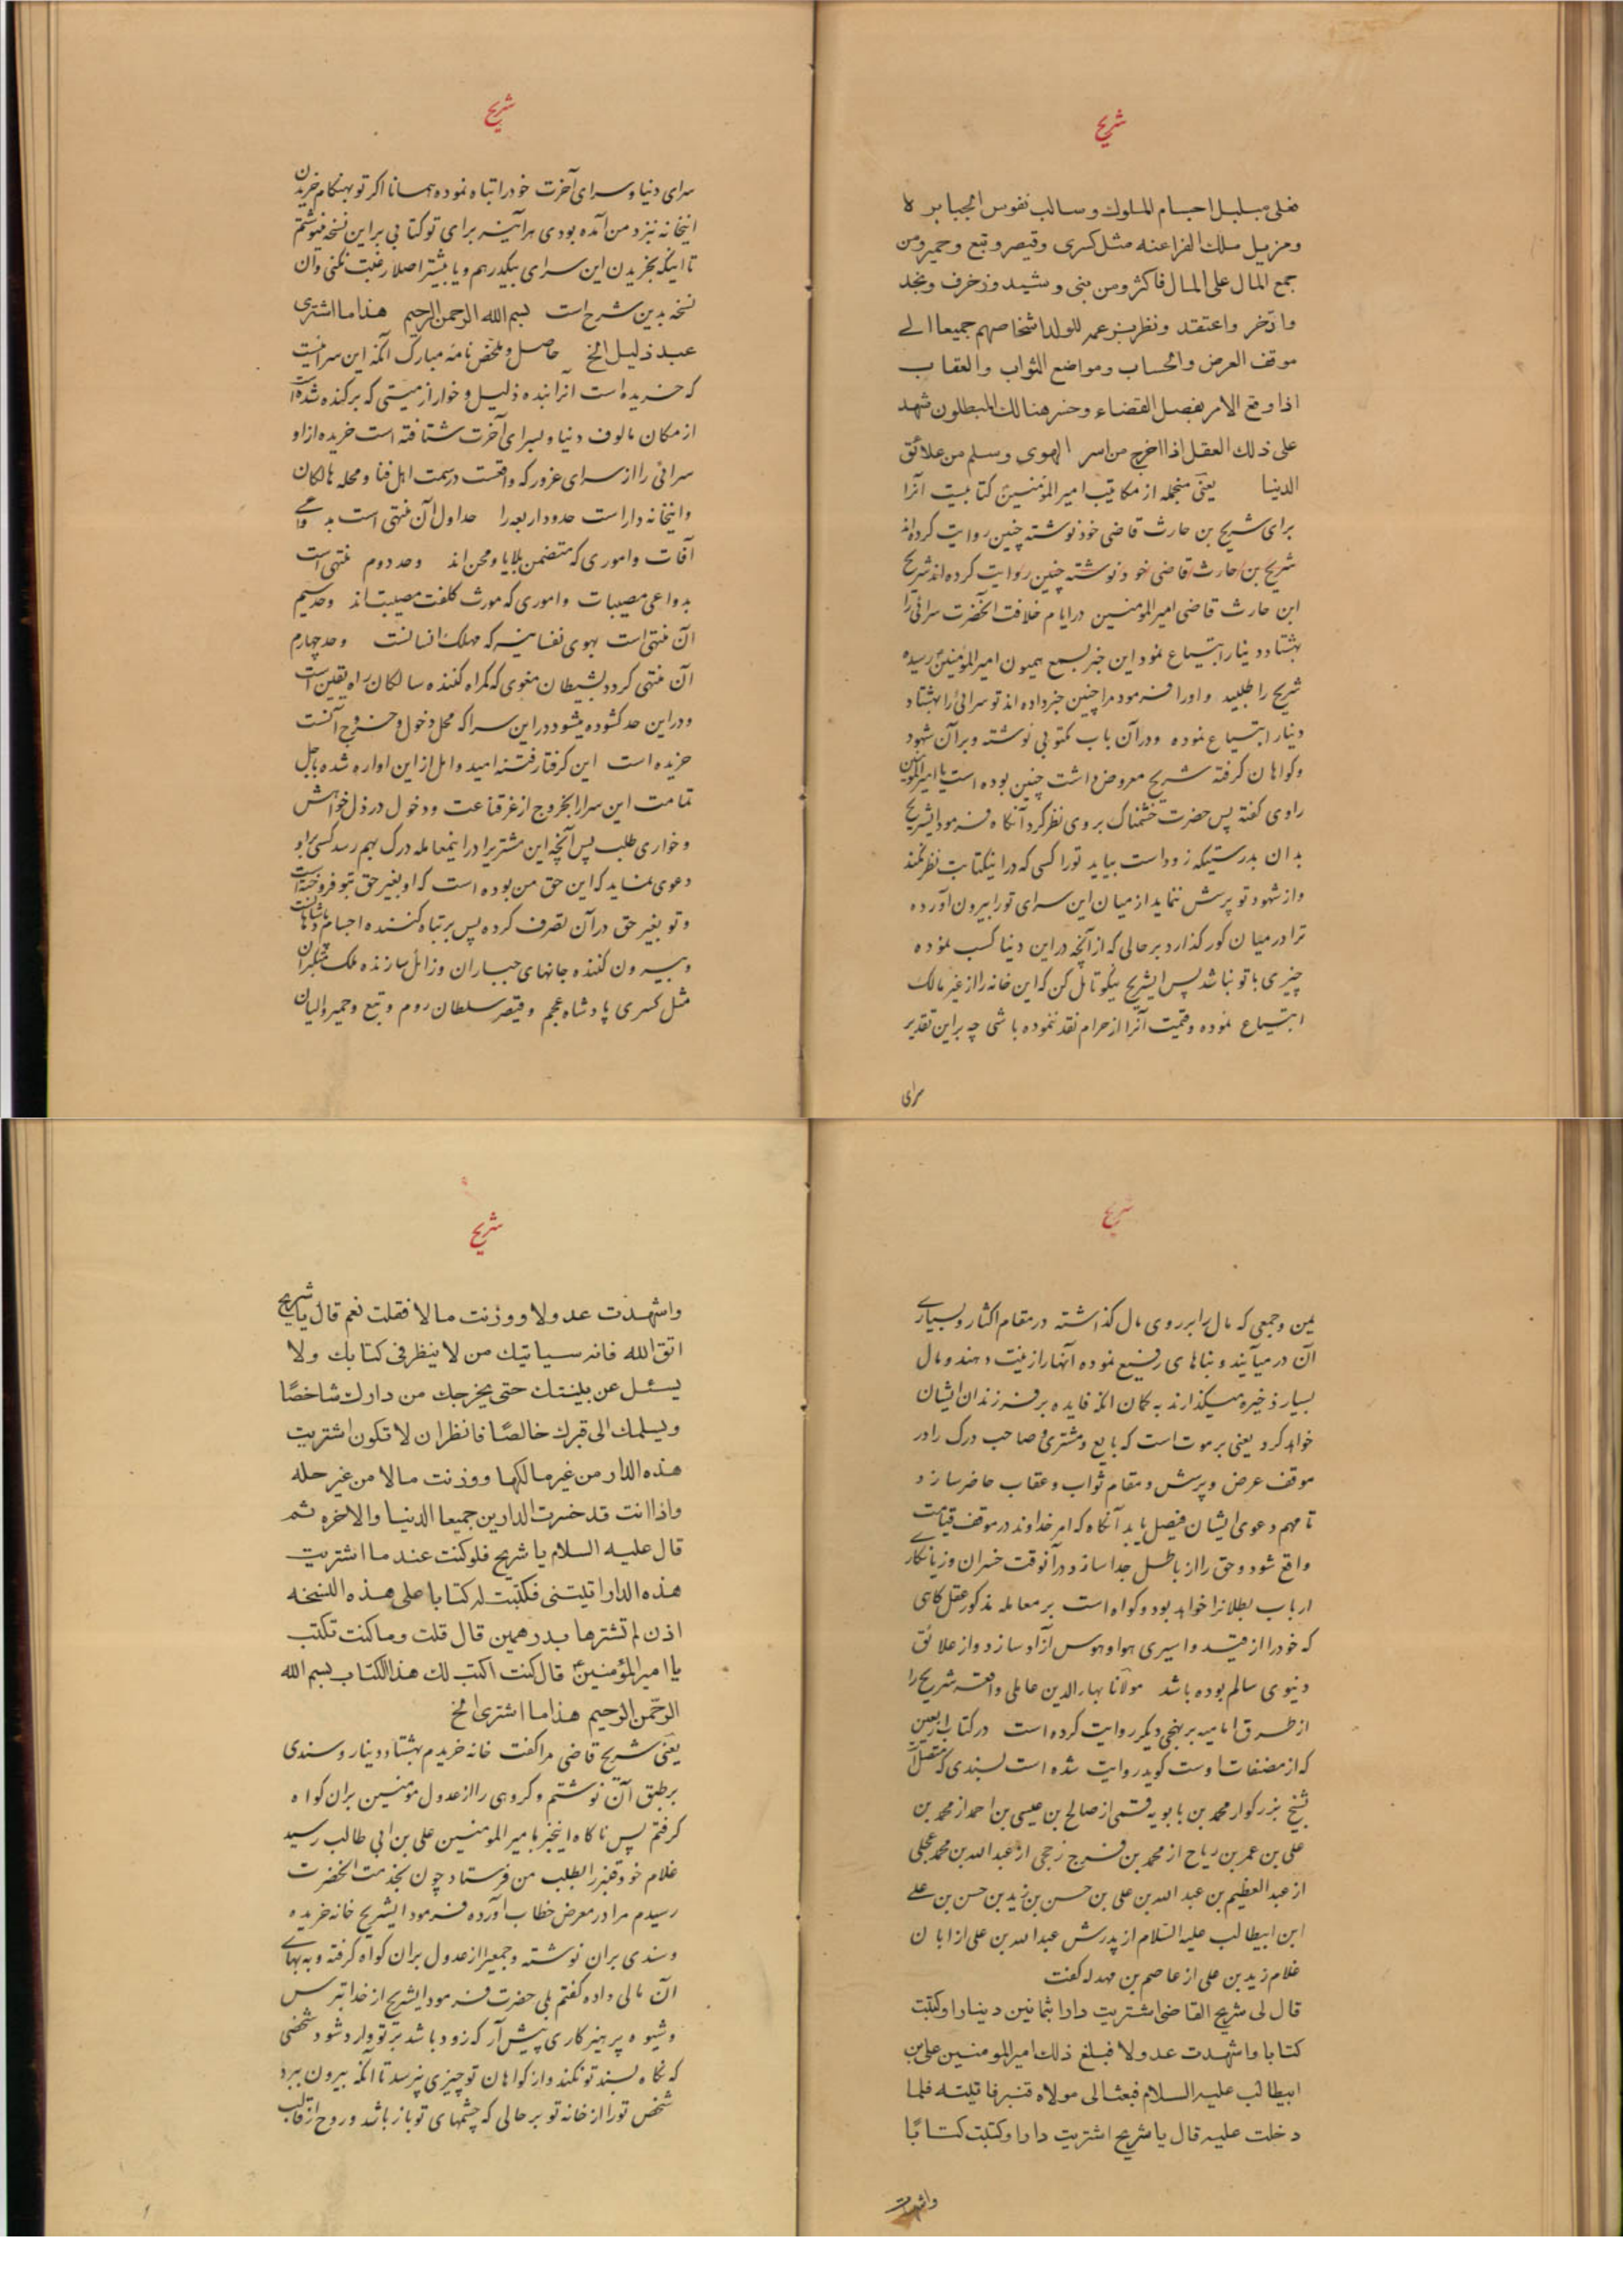 شریح
فعلی مبلبل اجسام الملوك وسالب نفوس الجبابرة
ومزیل ملك الفراعنه مثل کسری وقیصر وتبع وحمیر ومن
جمع المال علی المال فاکثر ومن بنی وشید وزخرف ونجد
وادّخر واعتقد ونظر بزعمه للولد اشخاصهم جمیعا الی
موقف العرض والحساب ومواضع الثواب والعقاب
اذا وقع الامر بفصل القضاء وخسر هنالك المبطلون شهد
علی ذلك العقل اذا اخرج من اسر الهوی وسلم من علائق
الدنیا یعنی منجمله از مکاتیب امیر المؤمنین کتابیست آنرا
برای شریح بن حارث قاضی خود نوشته چنین روایت کرده‌اند
شریح بن حارث قاضی خود نوشته چنین روایت کرده‌اند شریح
ابن حارث قاضی امیر المؤمنین در ایام خلافت آنحضرت سرائی را
بهشتاد دینار ابتیاع نمود این خبر بسمع همیون امیر المؤمنین رسیده
شریح را طلبید و اورا فرمود مرا چنین خبر داده اند تو سرائی را بهشتاد
دینار ابتیاع نموده ودر آن باب مکتوبی نوشته وبر آن شهود
وکواهان کرفته شریح معروض داشت چنین بوده است یا امیر المؤمنین
راوی کفته پس حضرت خشمناک بر وی نظر کرد آنکاه فرمود ایشریح
بدان بدرستیکه زود است بیاید تورا کسی که در اینکتابت نظر نکند
واز شهود تو پرسش ننماید از میان این سرای تورا بیرون آورده
ترا در میان کور کذارد بر حالی که از آنچه در این دنیا کسب نموده
چیزی با تو نباشد پس ایشریح نیکو تامل کن که این خانه را از غیر مالک
ابتیاع نموده وقیمت آنرا از حرام نقد ننموده باشی چه بر این تقدیر
سرای
شریح
سرای دنیا وسرای آخرت خود را تباه نموده همانا اکر تو بهنکام خریدن
اینخانه نزد من آمده بودی هر آینه برای تو کتابی بر این نسخه مینوشتم
تا اینکه بخریدن این سرای بیکدرهم ویا بیشتر اصلا رغبت نکنی وآن
نسخه بدین شرح است بسم الله الرحمن الرحیم هذا ما اشتری
عبد ذلیل الخ حاصل وملخص نامه مبارک آنکه این سرائیست
که خریده است آنرا بنده ذلیل وخوار از میتی که برکنده شده است
از مکان مالوف دنیا وبسرای آخرت شتافته است خریده از او
سرائی را از سرای غرور که واقعست در سمت اهل فنا ومحله هالکان
واینخانه دار است حدود اربعه را حد اول آن منتهی است بدواعی
آفات واموری که متضمن بلایا ومحن اند وحد دوم منتهی است
بدواعی مصیبات واموری که مورث کلفت مصیبت اند وحد سیم
آن منتهی است بهوی نفسانیه که مهلک انسانست وحد چهارم
آن منتهی کردد بشیطان مغوی که کمراه کننده سالکان راه یقین است
ودر این حد کشوده میشود در این سرا که محل دخول وخروج آنست
خریده است این کرفتار فتنه امید وامل از این اواره شده باجل
تمامت این سرا را بخروج از عز قناعت ودخول در ذل خواهش
وخواری طلب پس آنچه این مشتریرا در اینمعامله درک بهم رسد کسی بر او
دعوی نماید که این حق من بوده است که او بغیر حق بتو فروخته است
وتو بغیر حق در آن تصرف کرده پس بر تباه کننده اجسام پادشاهان
وبیرون کننده جانهای جباران وزائل سازنده ملک متکبران
مثل کسری پادشاه عجم وقیصر سلطان روم وتبع وحمیر والیان
شریح
یمن وجمعی که مال را بر روی مال کذاشته در مقام اکثار وبسیاری
آن درمیآیند وبناهای رفیع نموده آنها را زینت دهند ومال
بسیار ذخیره میکذارند به کمان آنکه فایده بر فرزندان ایشان
خواهد کرد یعنی بر موت است که بایع ومشتری وصاحب درک را در
موقف عرض وپرسش ومقام ثواب وعقاب حاضر سازد
تا مهم دعوی ایشان فیصل یابد آنکاه که امر خداوند در موقف قیامت
واقع شود وحق را از باطل جدا سازد در آنوقت خسران وزیانکاری
ارباب بطلانرا خواهد بود وکواه است بر معامله مذکور عقل کاهی
که خود را از قید واسیری هوا وهوس آزاد سازد واز علائق
دنیوی سالم بوده باشد مولانا بهاء الدین عاملی واقعه شریح را
از طرق امامیه بر نهجی دیکر روایت کرده است در کتاب اربعین
که از مصنفات اوست کوید روایت شده است بسندی که متصل
شیخ بزرکوار محمد بن بابویه قمی از صالح بن عیسی بن احمد از محمد بن
علی بن عمر بن ریاح از محمد بن فرج رخجی از عبد الله بن محمد عجلی
از عبد العظیم بن عبد الله بن علی بن حسن بن زید بن حسن بن علی
ابن ابیطالب علیه السلام از پدرش عبد الله بن علی از ابان
غلام زید بن علی از عاصم بن بهدله کفت
قال لی شریح القاضی اشتریت دارا بثمانین دینارا وکتبت
کتابا واشهدت عدولا فبلغ ذلك امیر المومنین علی بن
ابیطالب علیه السلام فبعث الی مولاه قنبر فاتیته فلما
دخلت علیه قال یا شریح اشتریت دارا وکتبت کتابًا
واشهدت
شریح
واشهدت عدولا ووزنت مالا فقلت نعم قال یا شریح
اتق الله فانه سیاتیك من لا ینظر فی کتابك ولا
یسئل عن بینتك حتی یخرجك من دارك شاخصًا
ویسلمك الی قبرك خالصًا فانظر ان لا تکون اشتریت
هذه الدار من غیر مالکها ووزنت مالا من غیر حله
واذا انت قد خسرت الدارین جمیعا الدنیا والاخره ثم
قال علیه السلام یا شریح فلو کنت عند ما اشتریت
هذه الدار اتیتنی فکتبت لك کتابا علی هذه النسخه
اذن لم تشترها بدرهمین قال قلت وما کنت تکتب
یا امیر المؤمنین قال کنت اکتب لك هذا الکتاب بسم الله
الرحمن الرحیم هذا ما اشتری الخ
یعنی شریح قاضی مرا کفت خانه خریدم بهشتاد دینار وسندی
بر طبق آن نوشتم وکروهی را از عدول مؤمنین بران کواه
کرفتم پس ناکاه اینخبر بامیر المومنین علی بن ابی طالب رسید
غلام خود قنبر را بطلب من فرستاد چون بخدمت آنحضرت
رسیدم مرا در معرض خطاب آورده فرمود ایشریح خانه خریده
وسندی بران نوشته وجمعیرا از عدول بران کواه کرفته وبه بهای
آن مالی داده کفتم بلی حضرت فرمود ایشریح از خدا بترس
وشیوه پرهیزکاری پیش آر که زود باشد بر تو وارد شود شخصی
که نکاه بسند تو نکند واز کواهان تو چیزی نپرسد تا آنکه بیرون ببرد
شخص تورا از خانه تو بر حالی که چشمهای تو باز باشد وروح از قالب